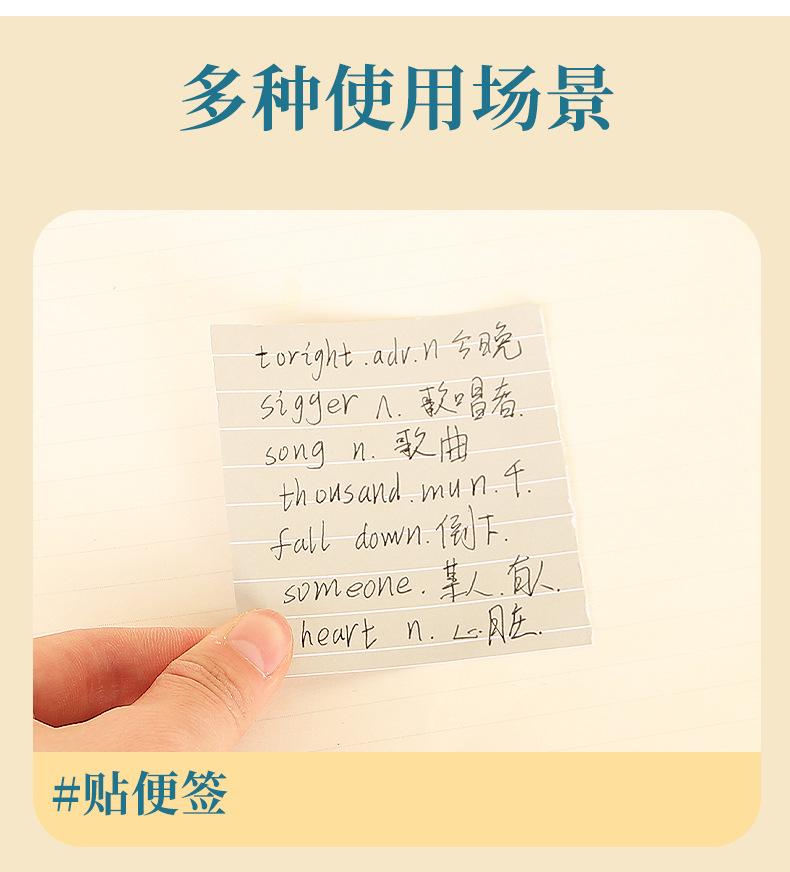 多种使用场景
toright.adv.n 今晚
sigger n. 歌唱者.
song n. 歌曲
thousand.mun.千.
fall down.倒下.
someone.某人.有人.
heart n. 心脏.
#贴便签